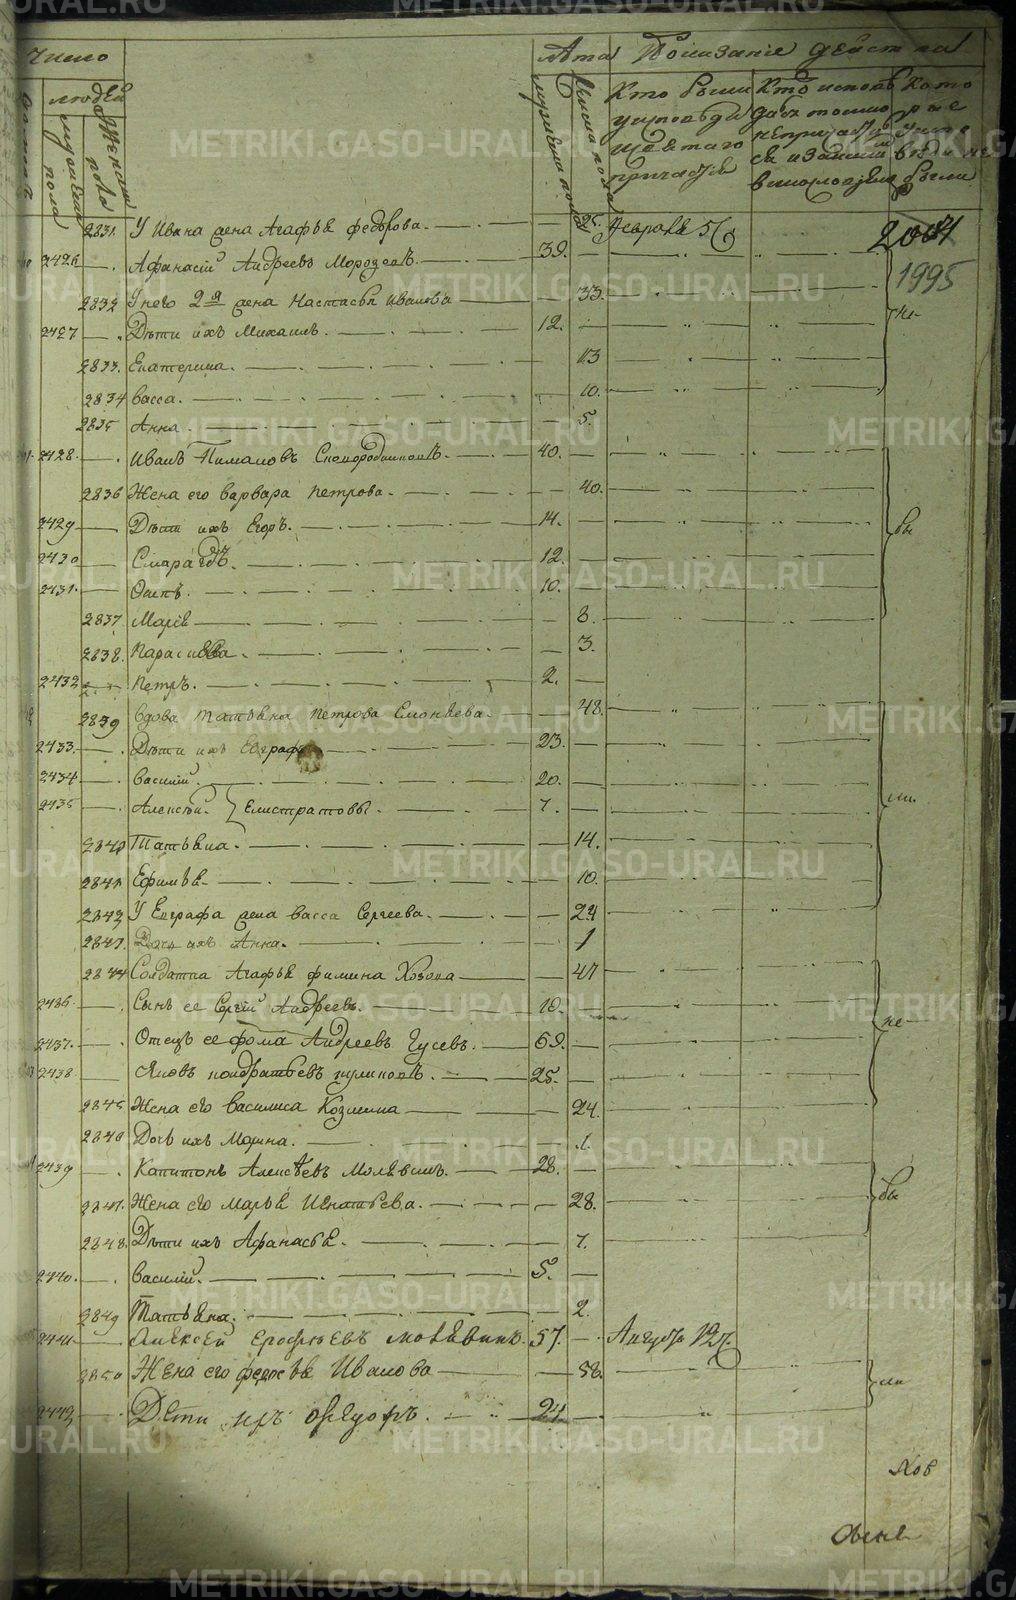 Число
Лета
Показание действа
людей
мужеска пола
женска пола
мужеска пола
женска пола
Кто были у исповеди и святаго причастия
Кто исповедался токмо а не причастился и за каким винословием
Которые у исповеди не были
2831. У Ивана жена Агафья Федорова. 25. Февраля 5го
2004
1995
2426 Афанасий Андреевъ Морозовъ. 39.
2832 У него 2я жена Настасья Иванова 33.
2427 Дети ихъ Михаилъ. 12.
2833. Екатерина. 13
2834 Васса. 10.
2835 Анна. 5.
2428 Иванъ Пимановъ Смородинковъ. 40.
2836 Жена его Варвара Петрова. 40.
2429 Дети ихъ Егоръ. 14.
бы
2430 Смарагдъ. 12.
2431. Осипъ. 10.
2837 Марія 8.
2838. Парасковья. 3.
2432 Петръ. 2.
2839 Вдова Татьяна Петрова 48.
2433. Дети ихъ Евграфъ 23.
2434 Василий. 20.
2435 Алексей. Елистратовы. 7.
ли.
2840 Татьяна. 14.
2841 Ефимья. 10.
2842 У Евграфа жена Васса Сергеева. 24
2843. Дочь ихъ Анна. 1
2844 Солдатка Агафья Фомина 47
2436. Сынъ ее Сергей Андреевъ. 10.
не
2437. Отецъ ее Фома Андреевъ Гусевъ. 69.
2438 Яковъ Кондратьевъ 25.
2845 Жена его Василиса Козмина 24.
2846 Дочь ихъ Марина. 1.
2439 Капитонъ Алексеевъ Молявинъ. 28.
бы
2847. Жена его Марья Игнатьева. 28.
2848. Дети ихъ Афанасья. 7.
2440. Василий. 5.
2849 Татьяна. 2.
2441 Алексей Ерофеевъ Молявинъ. 57. Августа 12го
2850 Жена его Федосья Иванова 58.
ли
2442 Дети ихъ Федоръ. 24.
METRIKI.GASO-URAL.RU